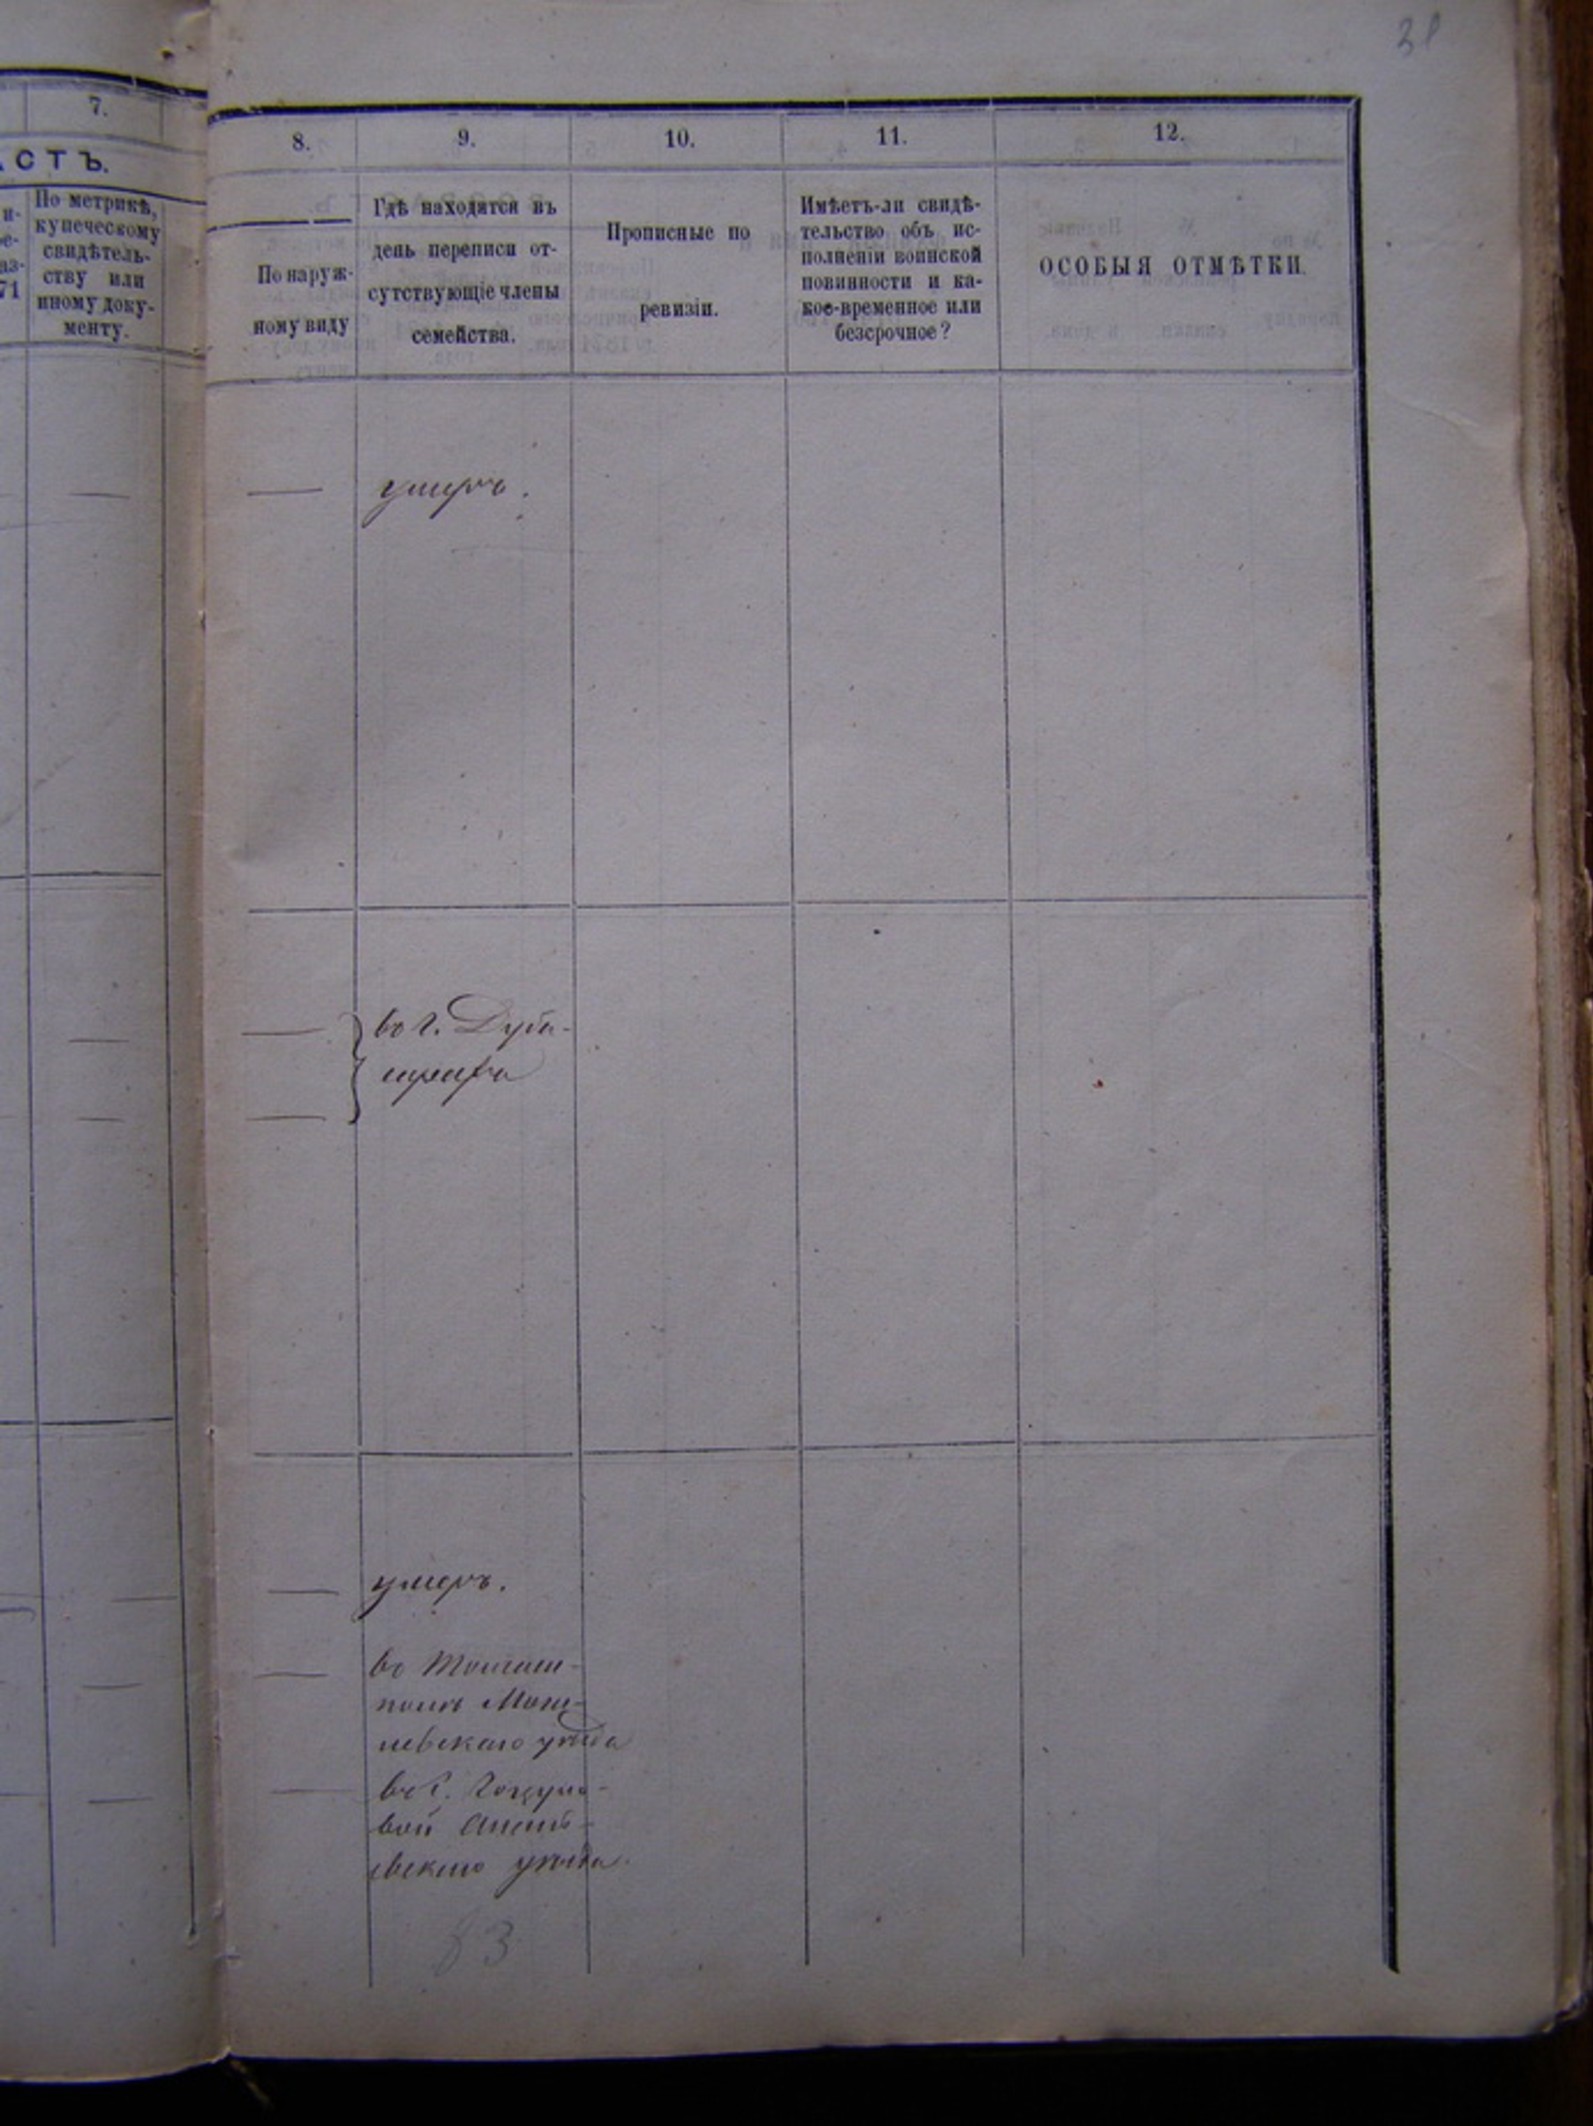 31
7.
АСТЪ.
По метрикѣ,
купеческому
свидѣтель-
ству или
иному доку-
менту.
71
8.
9.
10.
11.
12.
По наруж-
ному виду
Гдѣ находятся въ
день переписи от-
сутствующіе члены
семейства.
Прописные по
ревизіи.
Имѣетъ-ли свидѣ-
тельство объ ис-
полненіи воинской
повинности и ка-
кое-временное или
безсрочное?
ОСОБЫЯ ОТМѢТКИ.
умеръ.
въ г. Дуба-
умеръ.
въ
левскаго уѣзда
въ г.
вой Анань-
евскаго уѣзда.
83